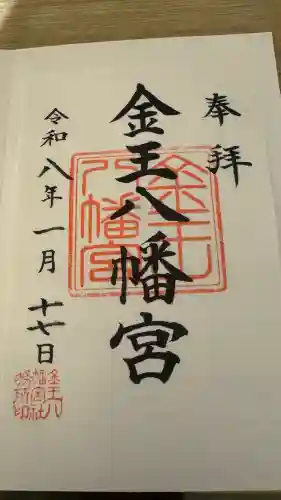 奉拝
金王八幡宮
令和八年一月十七日
金王八幡宮
金王八幡宮社務所印